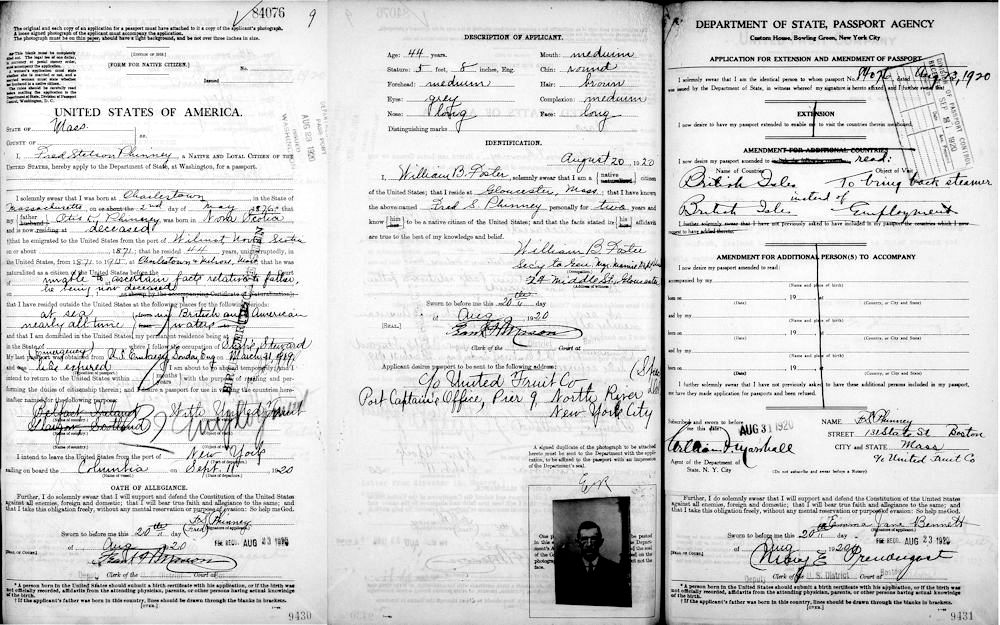 84076
9
The original and each copy of an application for a passport must have attached to it a copy of the applicant's photograph.
A loose signed photograph of the applicant must accompany the application.
The photograph must be on thin paper, should have a light background, and be not over three inches in size.
[FORM FOR NATIVE CITIZEN.]
No.
Issued
UNITED STATES OF AMERICA.
STATE OF Mass.
COUNTY OF
I, Fred Stetson Phinney, A NATIVE AND LOYAL CITIZEN OF THE
UNITED STATES, hereby apply to the Department of State, at Washington, for a passport.
I solemnly swear that I was born at Charlestown in the State of
Massachusetts on or about the 2nd day of May
father Otis Phinney, was born in Nova Scotia
and is now residing at deceased
that he emigrated to the United States from the port of Wilmot Nova Scotia
on or about 1871; that he resided 44 years, uninterruptedly, in
the United States, from 1871 to 1915, at Charlestown & Melrose, Mass that he was
naturalized as a citizen of the United States before the
unable to ascertain facts relative to father,
he being now deceased
that I have resided outside the United States at the following places for the following periods:
at sea in British and American
nearly all time waters
and that I am domiciled in the United States, my permanent residence being at
where I follow the occupation of Steward
My last passport was obtained from U.S. Embassy London Eng on March 31, 1919
and was expired I am about to go abroad temporarily, and I
intend to return to the United States within months with the purpose of residing and per-
forming the duties of citizenship therein; and I desire a passport for use in visiting the countries here-
inafter named for the following purpose:
Belfast Ireland With United Fruit
Glasgow Scotland
I intend to leave the United States from the port of New York
sailing on board the Columbia on Sept. 11 1920
OATH OF ALLEGIANCE.
Further, I do solemnly swear that I will support and defend the Constitution of the United States
against all enemies, foreign and domestic; that I will bear true faith and allegiance to the same; and
that I take this obligation freely, without any mental reservation or purpose of evasion: So help me God.
F S Phinney
(Fred)
Sworn to before me this 20th day
of Aug 1920
FEE REC'D. AUG 23 1920
Clerk of the U. S. District Court at
* A person born in the United States should submit a birth certificate with his application, or if the birth was
not officially recorded, affidavits from the attending physician, parents, or other persons having actual knowledge
of the birth.
† If the applicant's father was born in this country, lines should be drawn through the blanks in brackets.
[OVER.]
9430
84076
9
DESCRIPTION OF APPLICANT.
Age: 44 years. Mouth: medium
Stature: 5 feet, 8 inches, Eng. Chin: round
Forehead: medium Hair: brown
Eyes: grey Complexion: medium
Nose: long Face: long
Distinguishing marks
IDENTIFICATION.
August 20, 1920
I, William B. Foster, solemnly swear that I am a native citizen
of the United States; that I reside at Gloucester, Mass.; that I have known
the above-named Fred S. Phinney personally for two years and
know him to be a native citizen of the United States; and that the facts stated in his affidavit
are true to the best of my knowledge and belief.
William B Foster
24 Middle St, Gloucester
Sworn to before me this 20th day
of Aug 1920
[SEAL.]
Clerk of the Court at
Applicant desires passport to be sent to the following address:
c/o United Fruit Co
Port Captain's Office, Pier 9 North River
New York City
A signed duplicate of the photograph to be attached
hereto must be sent to the Department with the appli-
cation, to be affixed to the passport with an impression
of the Department's seal.
DEPARTMENT OF STATE, PASSPORT AGENCY
Custom House, Bowling Green, New York City
APPLICATION FOR EXTENSION AND AMENDMENT OF PASSPORT
I solemnly swear that I am the identical person to whom passport No. 84076, dated Aug 23, 1920
was issued by the Department of State, in witness whereof my signature is hereto affixed, and I further swear that
EXTENSION
I now desire to have my passport extended to enable me to visit the countries therein mentioned.
AMENDMENT FOR ADDITIONAL COUNTRIES
I now desire my passport amended to read:
Name of Country Object of Visit
British Isles To bring back steamer
instead of
British Isles Employment
I further solemnly swear that I have not previously asked to have included in my passport the countries which I now
request to have added thereto.
AMENDMENT FOR ADDITIONAL PERSON(S) TO ACCOMPANY
I now desire my passport amended to read:
accompanied by my
Name and place of birth)
born on 19 at
(Date) (Country, or City and State)
and by my
(Name and place of birth)
born on 19 at
(Date) (Country, or City and State)
and by my
(Name and place of birth)
born on 19 at
(Date) (Country, or City and State)
and by my
(Name and place of birth)
born on 19 at
(Date) (Country, or City and State)
I further solemnly swear that I have not previously asked to have these additional persons included in my passport,
nor have they made application for passports and been refused.
Subscribed and sworn to before
me this date AUG 31 1920
William J. Marshall
Agent of the Department of
State, N. Y. City
NAME F S Phinney
STREET 131 State St Boston
CITY AND STATE Mass
c/o United Fruit Co
(Do not subscribe and swear before a Notary)
Further, I do solemnly swear that I will support and defend the Constitution of the United States
against all enemies, foreign and domestic; that I will bear true faith and allegiance to the same; and
that I take this obligation freely, without any mental reservation or purpose of evasion: So help me God.
Emma Jane Bennett
Sworn to before me this 20th day
of Aug 1920
FEE REC'D. AUG 23 1920
Mary E. Prendergast
Deputy Clerk of the U. S. District Court at Boston
* A person born in the United States should submit a birth certificate with his application, or if the birth was
not officially recorded, affidavits from the attending physician, parents, or other persons having actual knowledge
of the birth.
† If the applicant's father was born in this country, lines should be drawn through the blanks in brackets.
[OVER.]
9431